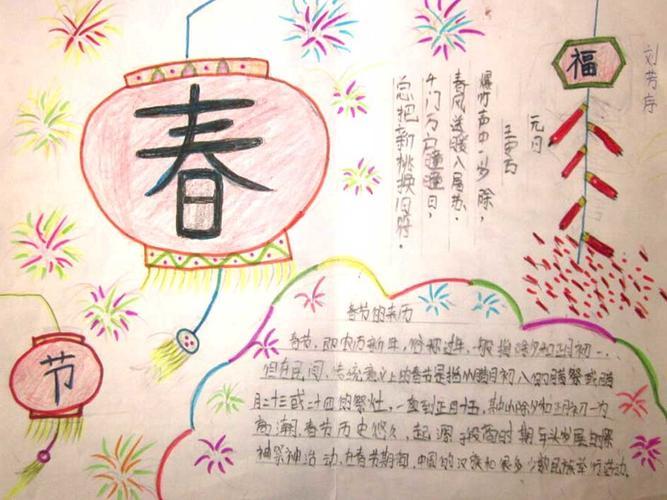 春
节
福
刘芳序
元日
王安石
爆竹声中一岁除，
春风送暖入屠苏。
千门万户曈曈日，
总把新桃换旧符。
春节的来历
春节，即农历新年，俗称过年，一般指除夕和正月初一。
但在民间，传统意义上的春节是指从腊月初八的腊祭或腊
月二十三或二十四的祭灶，一直到正月十五，其中以除夕和正月初一为
高潮。春节历史悠久，起源于殷商时期年头岁尾的祭
神祭祖活动。在春节期间，中国的汉族和很多少数民族举行活动。